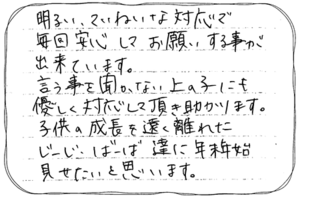 明るい、ていねいな対応で
毎回安心してお願いする事が
出来ています。
言う事を聞かない上の子にも
優しく対応して頂き助かります。
子供の成長を遠く離れた
じーじ・ばーば達に年末年始
見せたいと思います。